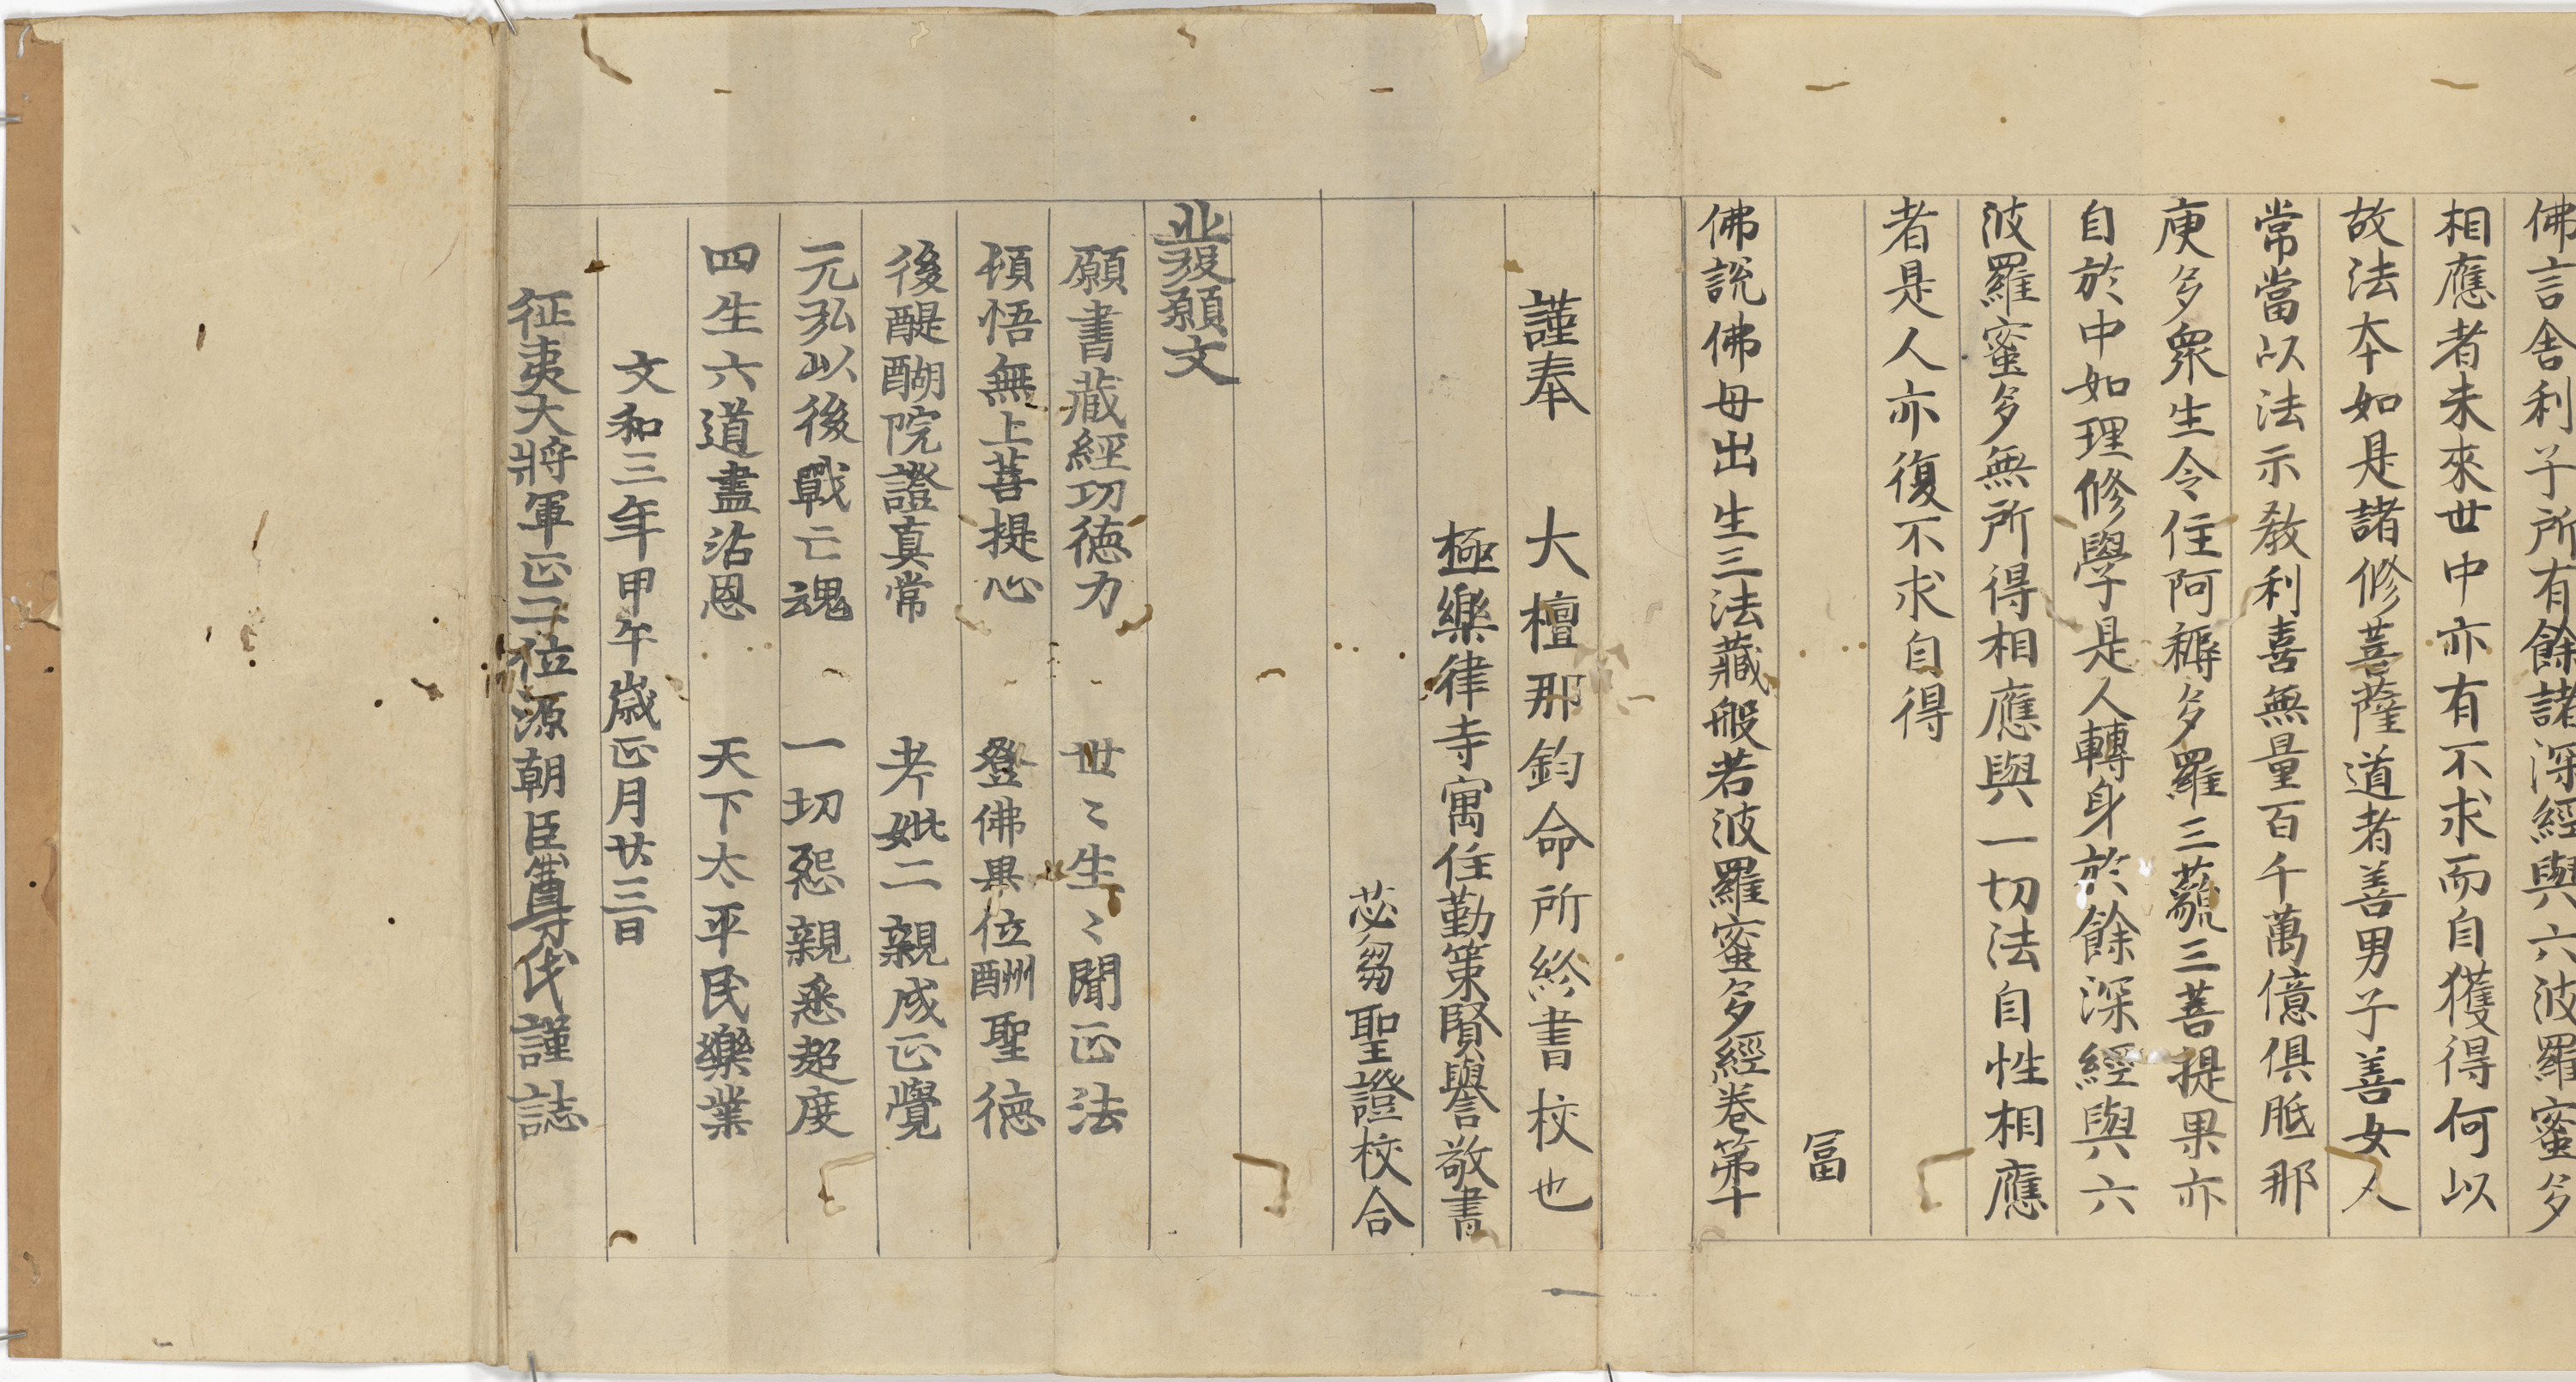 佛言舍利子所有餘諸深經與六波羅蜜多
相應者未來世中亦有不求而自獲得何以
故法本如是諸修菩薩道者善男子善女人
常當以法示教利喜無量百千萬億俱胝那
庾多衆生令住阿耨多羅三藐三菩提果亦
自於中如理修學是人轉身於餘深經與六
波羅蜜多無所得相應與一切法自性相應
者是人亦復不求自得
冨
佛說佛母出生三法藏般若波羅蜜多經卷第十
謹奉　大檀那鈞命所終書校也
極樂律寺寓住勤策賢譽敬書
苾芻聖證校合
發願文
願書藏經功德力　世〻生〻聞正法
頓悟無上菩提心　登佛果位酬聖德
後醍醐院證真常　考妣二親成正覺
元弘以後戰亡魂　一切怨親悉超度
四生六道盡沾恩　天下太平民樂業
文和三年甲午歲正月廿三日
征夷大將軍正二位源朝臣尊氏謹誌